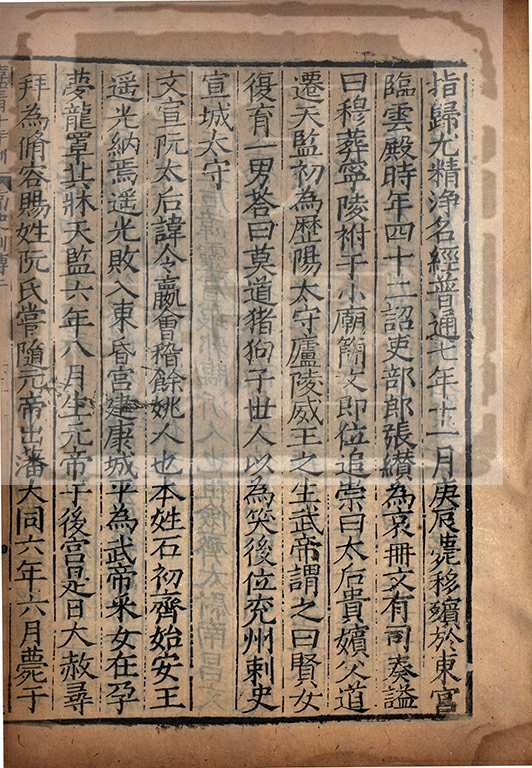 指歸尤精淨名經普通七年十一月庚辰薨移殯於東宮
臨雲殿時年四十二詔吏部郎張纘為哀冊文有司奏謚
曰穆葬寧陵祔于小廟簡文即位追崇曰太后貴嬪父道
遷天監初為歷陽太守廬陵威王之生武帝謂之曰賢女
復育一男荅曰莫道猪狗子世人以為笑後位兖州刺史
宣城太守
文宣阮太后諱令嬴會稽餘姚人也本姓石初齊始安王
遥光納焉遥光敗入東昏宮建康城平為武帝采女在孕
夢龍罩其牀天監六年八月生元帝于後宮是日大赦尋
拜為脩容賜姓阮氏嘗隨元帝出藩大同六年六月薨于